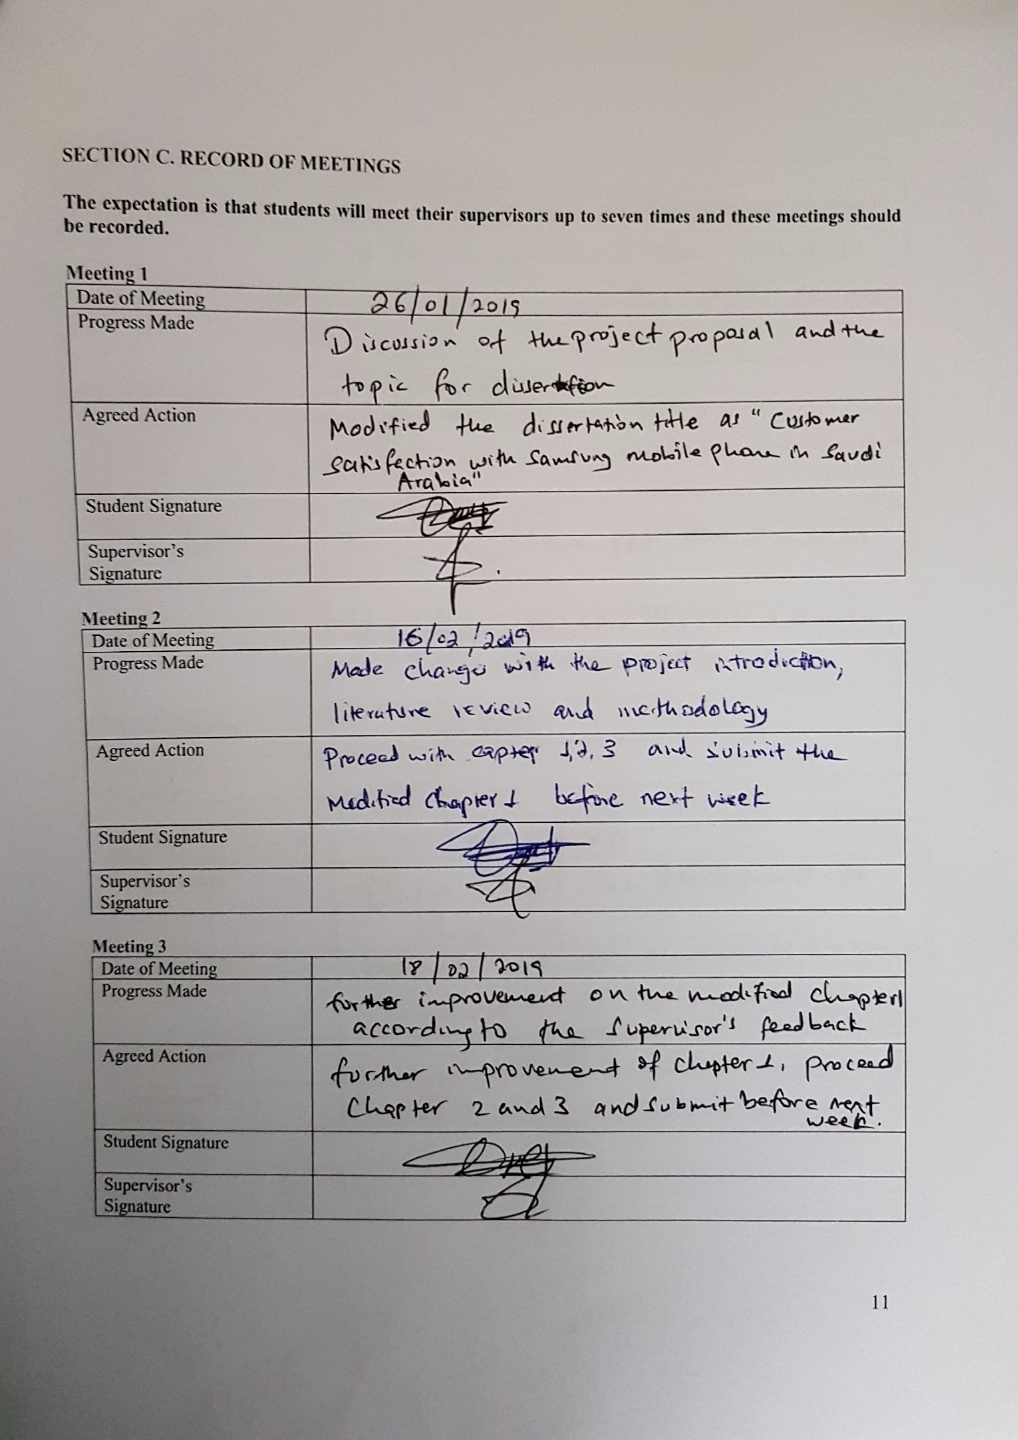 SECTION C. RECORD OF MEETINGS
The expectation is that students will meet their supervisors up to seven times and these meetings should
be recorded.
Meeting 1
Date of Meeting 26/01/2019
Progress Made Discussion of the project proposal and the
topic for dissertation
Agreed Action Modified the dissertation title as "Customer
satisfection with Samsung mobile phone in Saudi
Arabia"
Student Signature
Supervisor's
Signature
Meeting 2
Date of Meeting 16/02/2019
Progress Made Made changes with the project introdiction,
literature review and methodology
Agreed Action Proceed with capter 1,2,3 and submit the
Modified Chapter 1 before next week
Student Signature
Supervisor's
Signature
Meeting 3
Date of Meeting 18/02/2019
Progress Made further improvement on the modified Chapter1
according to the Supervisor's feedback
Agreed Action further improvement of Chapter 1, proceed
Chapter 2 and 3 and submit before next
week.
Student Signature
Supervisor's
Signature
11